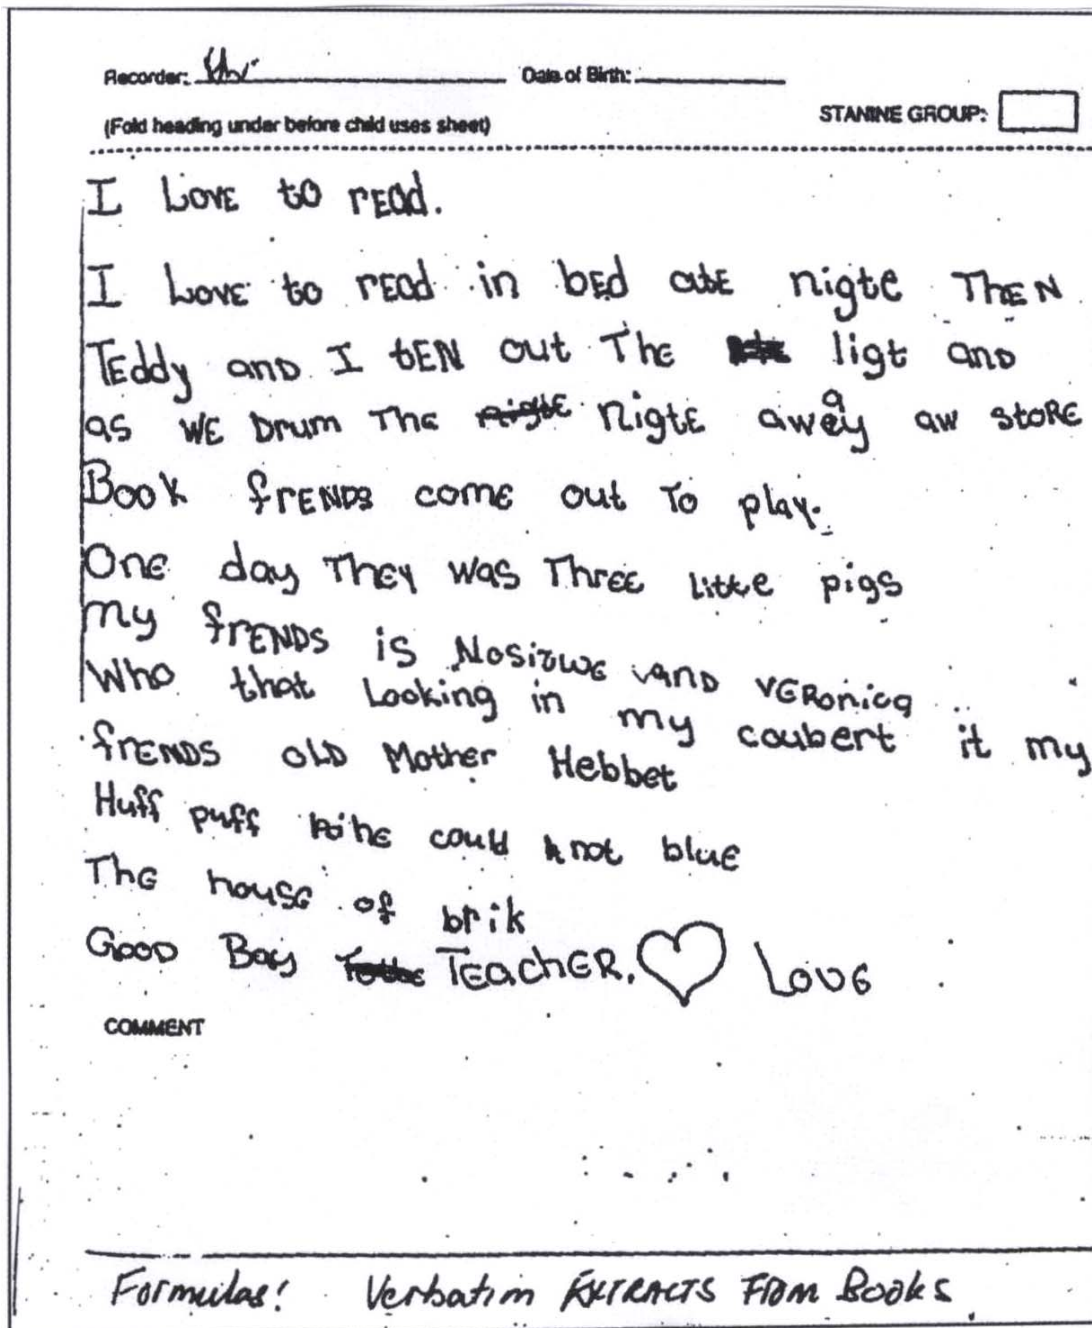 Recorder: Date of Birth:
STANINE GROUP:
(Fold heading under before child uses sheet)
I Love to read.
I Love to read in bed ate nigte Then
Teddy and I ten out The ligt and
as we Drum The nigte nigte away aw store
Book frends come out To play.
One day They was Three little pigs
My frends is Nosizwe and Veronica
Who that Looking in my coubert it my
frends old Mother Hebbet
Huff puff he could not blue
The house of brik
Good Bay Teacher. Love
COMMENT
Formulas! Verbatim EXTRACTS From Books